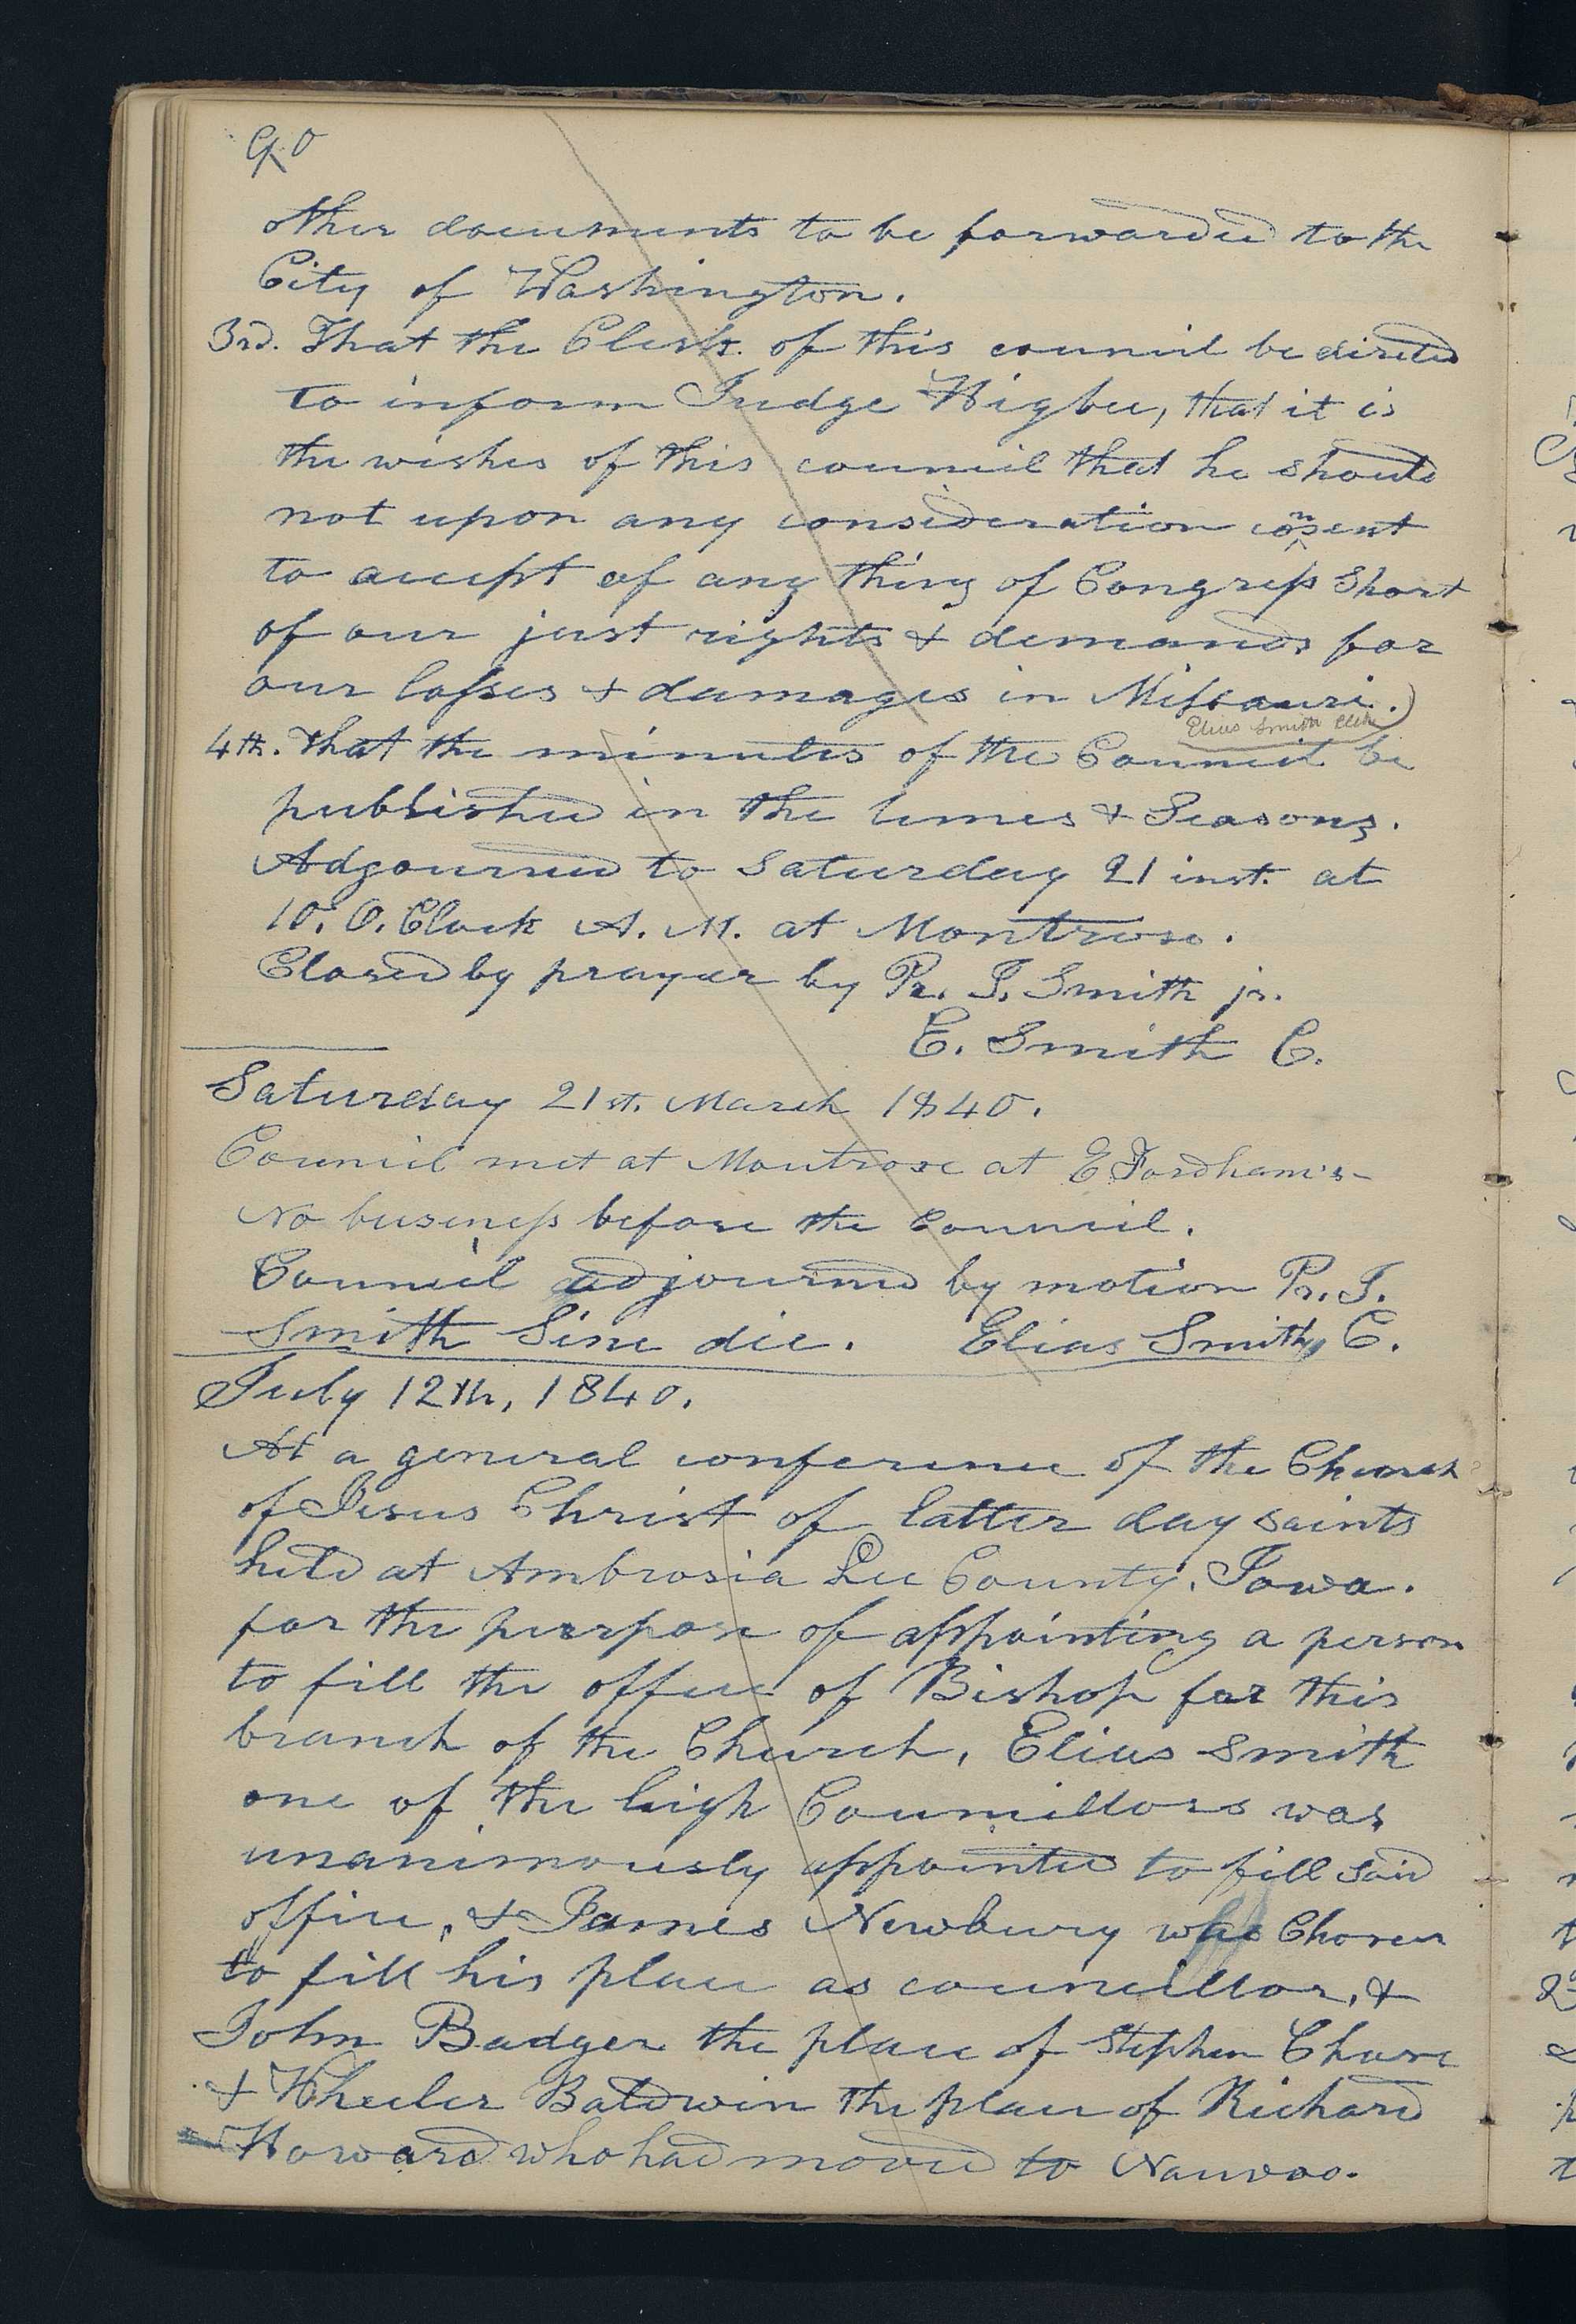 90
other documents to be forwarded to the
City of Washington.
3rd. That the Clerk of this council be directed
to inform Judge Higbee, that it is
the wishes of this council that he should
not upon any consideration consent
to accept of any thing of Congress short
of our just rights & demands for
our losses & damages in Missouri.)
Elias Smith Clerk
4th. That the minutes of the Council be
published in the times & Seasons.
Adjourned to Saturday 21 inst. at
10. O. Clock A. M. at Montrose.
Closed by prayer by Pr. J. Smith jr.
E. Smith C.
Saturday 21st. March 1840.
Council met at Montrose at E Fordham's-
No business before the Council.
Council adjourned by motion Pr. J.
Smith Sine die. Elias Smith, C.
July 12th, 1840.
At a general conference of the Church
of Jesus Christ of latter day saints
held at Ambrosia Lee County, Iowa.
for the purpose of appointing a person
to fill the office of Bishop for this
branch of the Church, Elias Smith
one of the high Councillors was
unanimously appointed to fill said
office, & James Newbury was Chosen
to fill his place as councillor, &
John Badger the place of Stephen Chase
& Wheeler Baldwin the place of Richard
Howard who had moved to Nauvoo.